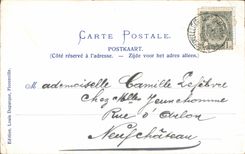 CARTE POSTALE.
POSTKAART.
(Côté réservé à l'adresse. — Zijde voor het adres alleen.)
Mademoiselle Camille Lefèbvre
Chez Mlle Jeunehomme
Rue d'Arlon
Neufchâteau
Edition, Louis Duparque, Florenville.